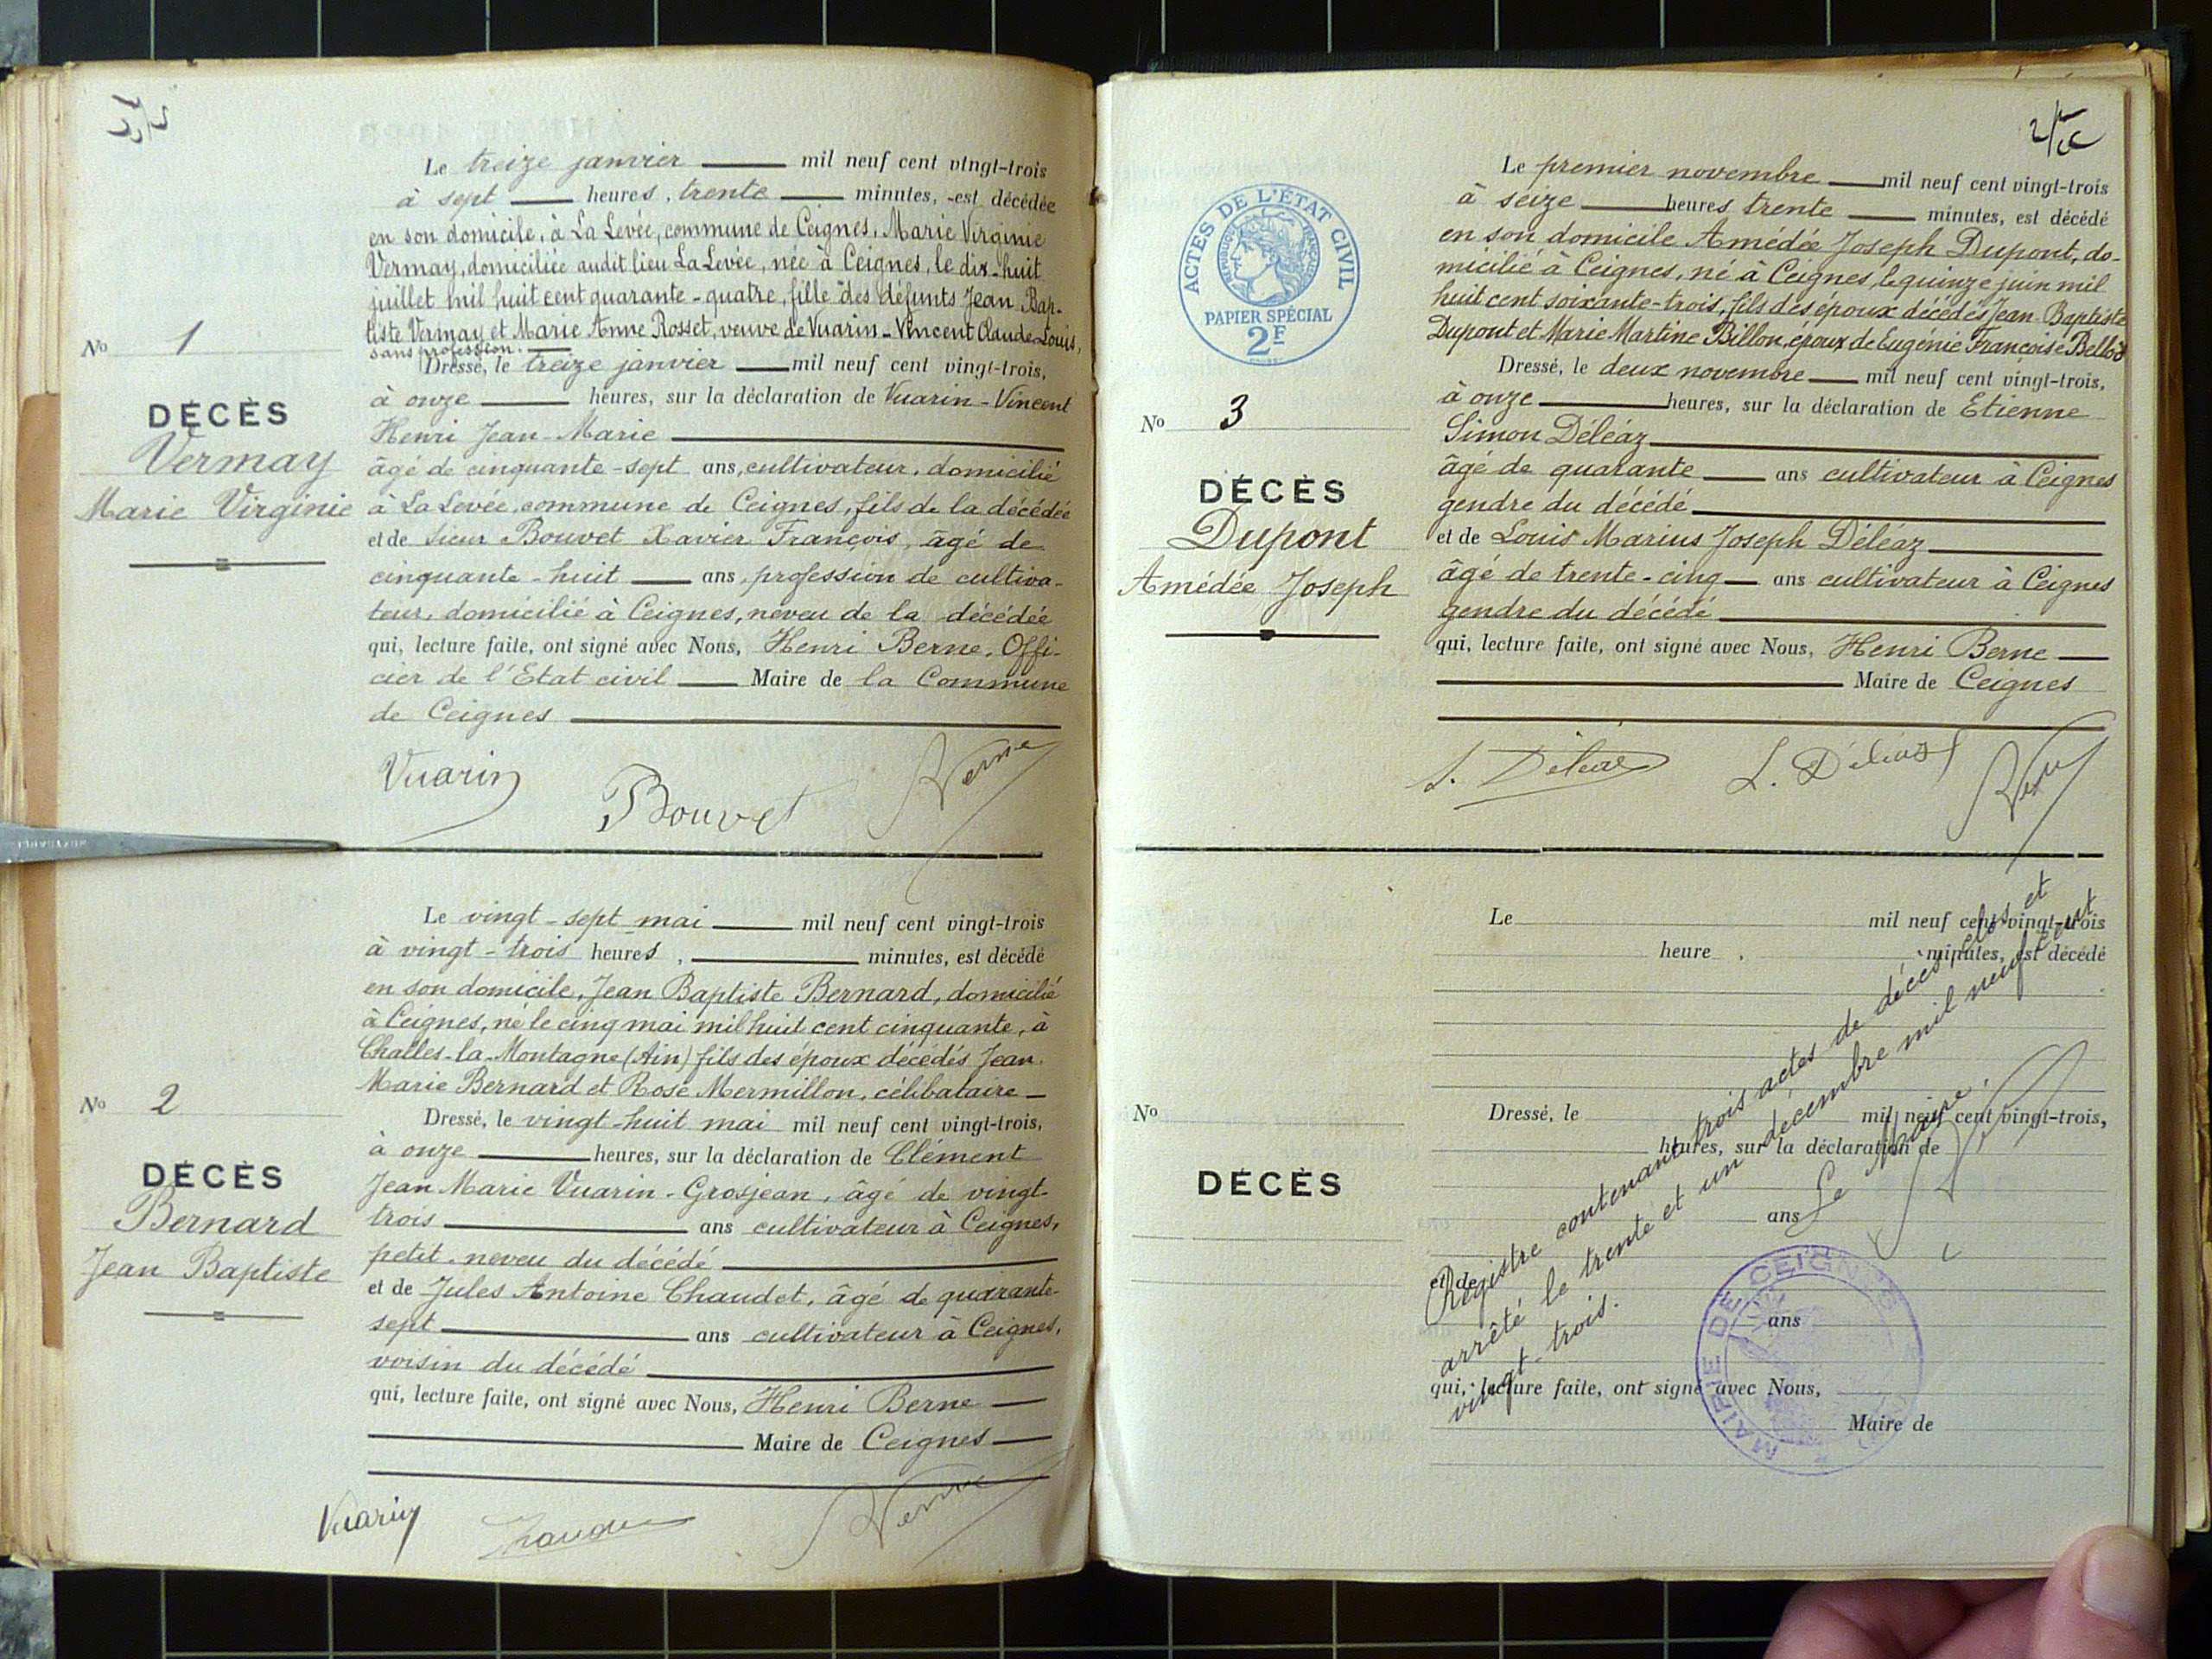 Le treize janvier mil neuf cent vingt-trois
à sept heures, trente minutes, est décédée
en son domicile, à La Levée, commune de Ceignes, Marie Virginie
Vermay, domiciliée audit lieu La Levée, née à Ceignes, le dix-huit
juillet mil huit cent quarante-quatre, fille des défunts Jean Bap-
tiste Vermay et Marie Anne Rosset, veuve de Vuarin-Vincent Claude Louis,
sans profession.
No 1
DÉCÈS
Vermay
Marie Virginie
Dressé, le treize janvier mil neuf cent vingt-trois,
à onze heures, sur la déclaration de Vuarin-Vincent
Henri Jean-Marie
âgé de cinquante-sept ans, cultivateur, domicilié
à La Levée, commune de Ceignes, fils de la décédée
et de Sieur Bouvet Xavier François, âgé de
cinquante-huit ans, profession de cultiva-
teur, domicilié à Ceignes, neveu de la décédée
qui, lecture faite, ont signé avec Nous, Henri Berne, Offi-
cier de l'Etat civil Maire de la Commune
de Ceignes
Vuarin Bouvet Berne
Le vingt-sept mai mil neuf cent vingt-trois
à vingt-trois heures, minutes, est décédé
en son domicile, Jean Baptiste Bernard, domicilié
à Ceignes, né le cinq mai mil huit cent cinquante, à
Challes-la-Montagne (Ain) fils des époux décédés Jean
Marie Bernard et Rose Mermillon, célibataire
No 2
DÉCÈS
Bernard
Jean Baptiste
Dressé, le vingt-huit mai mil neuf cent vingt-trois,
à onze heures, sur la déclaration de Clément
Jean Marie Vuarin-Grosjean, âgé de vingt-
trois ans cultivateur à Ceignes,
petit-neveu du décédé
et de Jules Antoine Chaudet, âgé de quarante-
sept ans cultivateur à Ceignes,
voisin du décédé
qui, lecture faite, ont signé avec Nous, Henri Berne
Maire de Ceignes
Vuarin Berne
ACTES DE L'ÉTAT CIVIL
RÉPUBLIQUE FRANÇAISE
PAPIER SPÉCIAL
2F
Le premier novembre mil neuf cent vingt-trois
à seize heures trente minutes, est décédé
en son domicile Amédée Joseph Dupont, do-
micilié à Ceignes, né à Ceignes, le quinze juin mil
huit cent soixante-trois, fils des époux décédés Jean Baptiste
Dupont et Marie Martine Billon, époux de Eugénie Françoise Bellod
No 3
DÉCÈS
Dupont
Amédée Joseph
Dressé, le deux novembre mil neuf cent vingt-trois,
à onze heures, sur la déclaration de Etienne
Simon Déléaz
âgé de quarante ans cultivateur à Ceignes
gendre du décédé
et de Louis Marius Joseph Déléaz
âgé de trente-cinq ans cultivateur à Ceignes
gendre du décédé
qui, lecture faite, ont signé avec Nous, Henri Berne
Maire de Ceignes
S. Déléaz L. Déléaz
Le mil neuf cent vingt-trois
heure, minutes, est décédé
No
DÉCÈS
Dressé, le mil neuf cent vingt-trois,
heures, sur la déclaration de
ans
et de
ans
qui, lecture faite, ont signé avec Nous,
Maire de
Registre contenant trois actes de décès, clos et
arrêté le trente et un décembre mil neuf cent
vingt-trois.
Le Maire.
MAIRIE DE CEIGNES